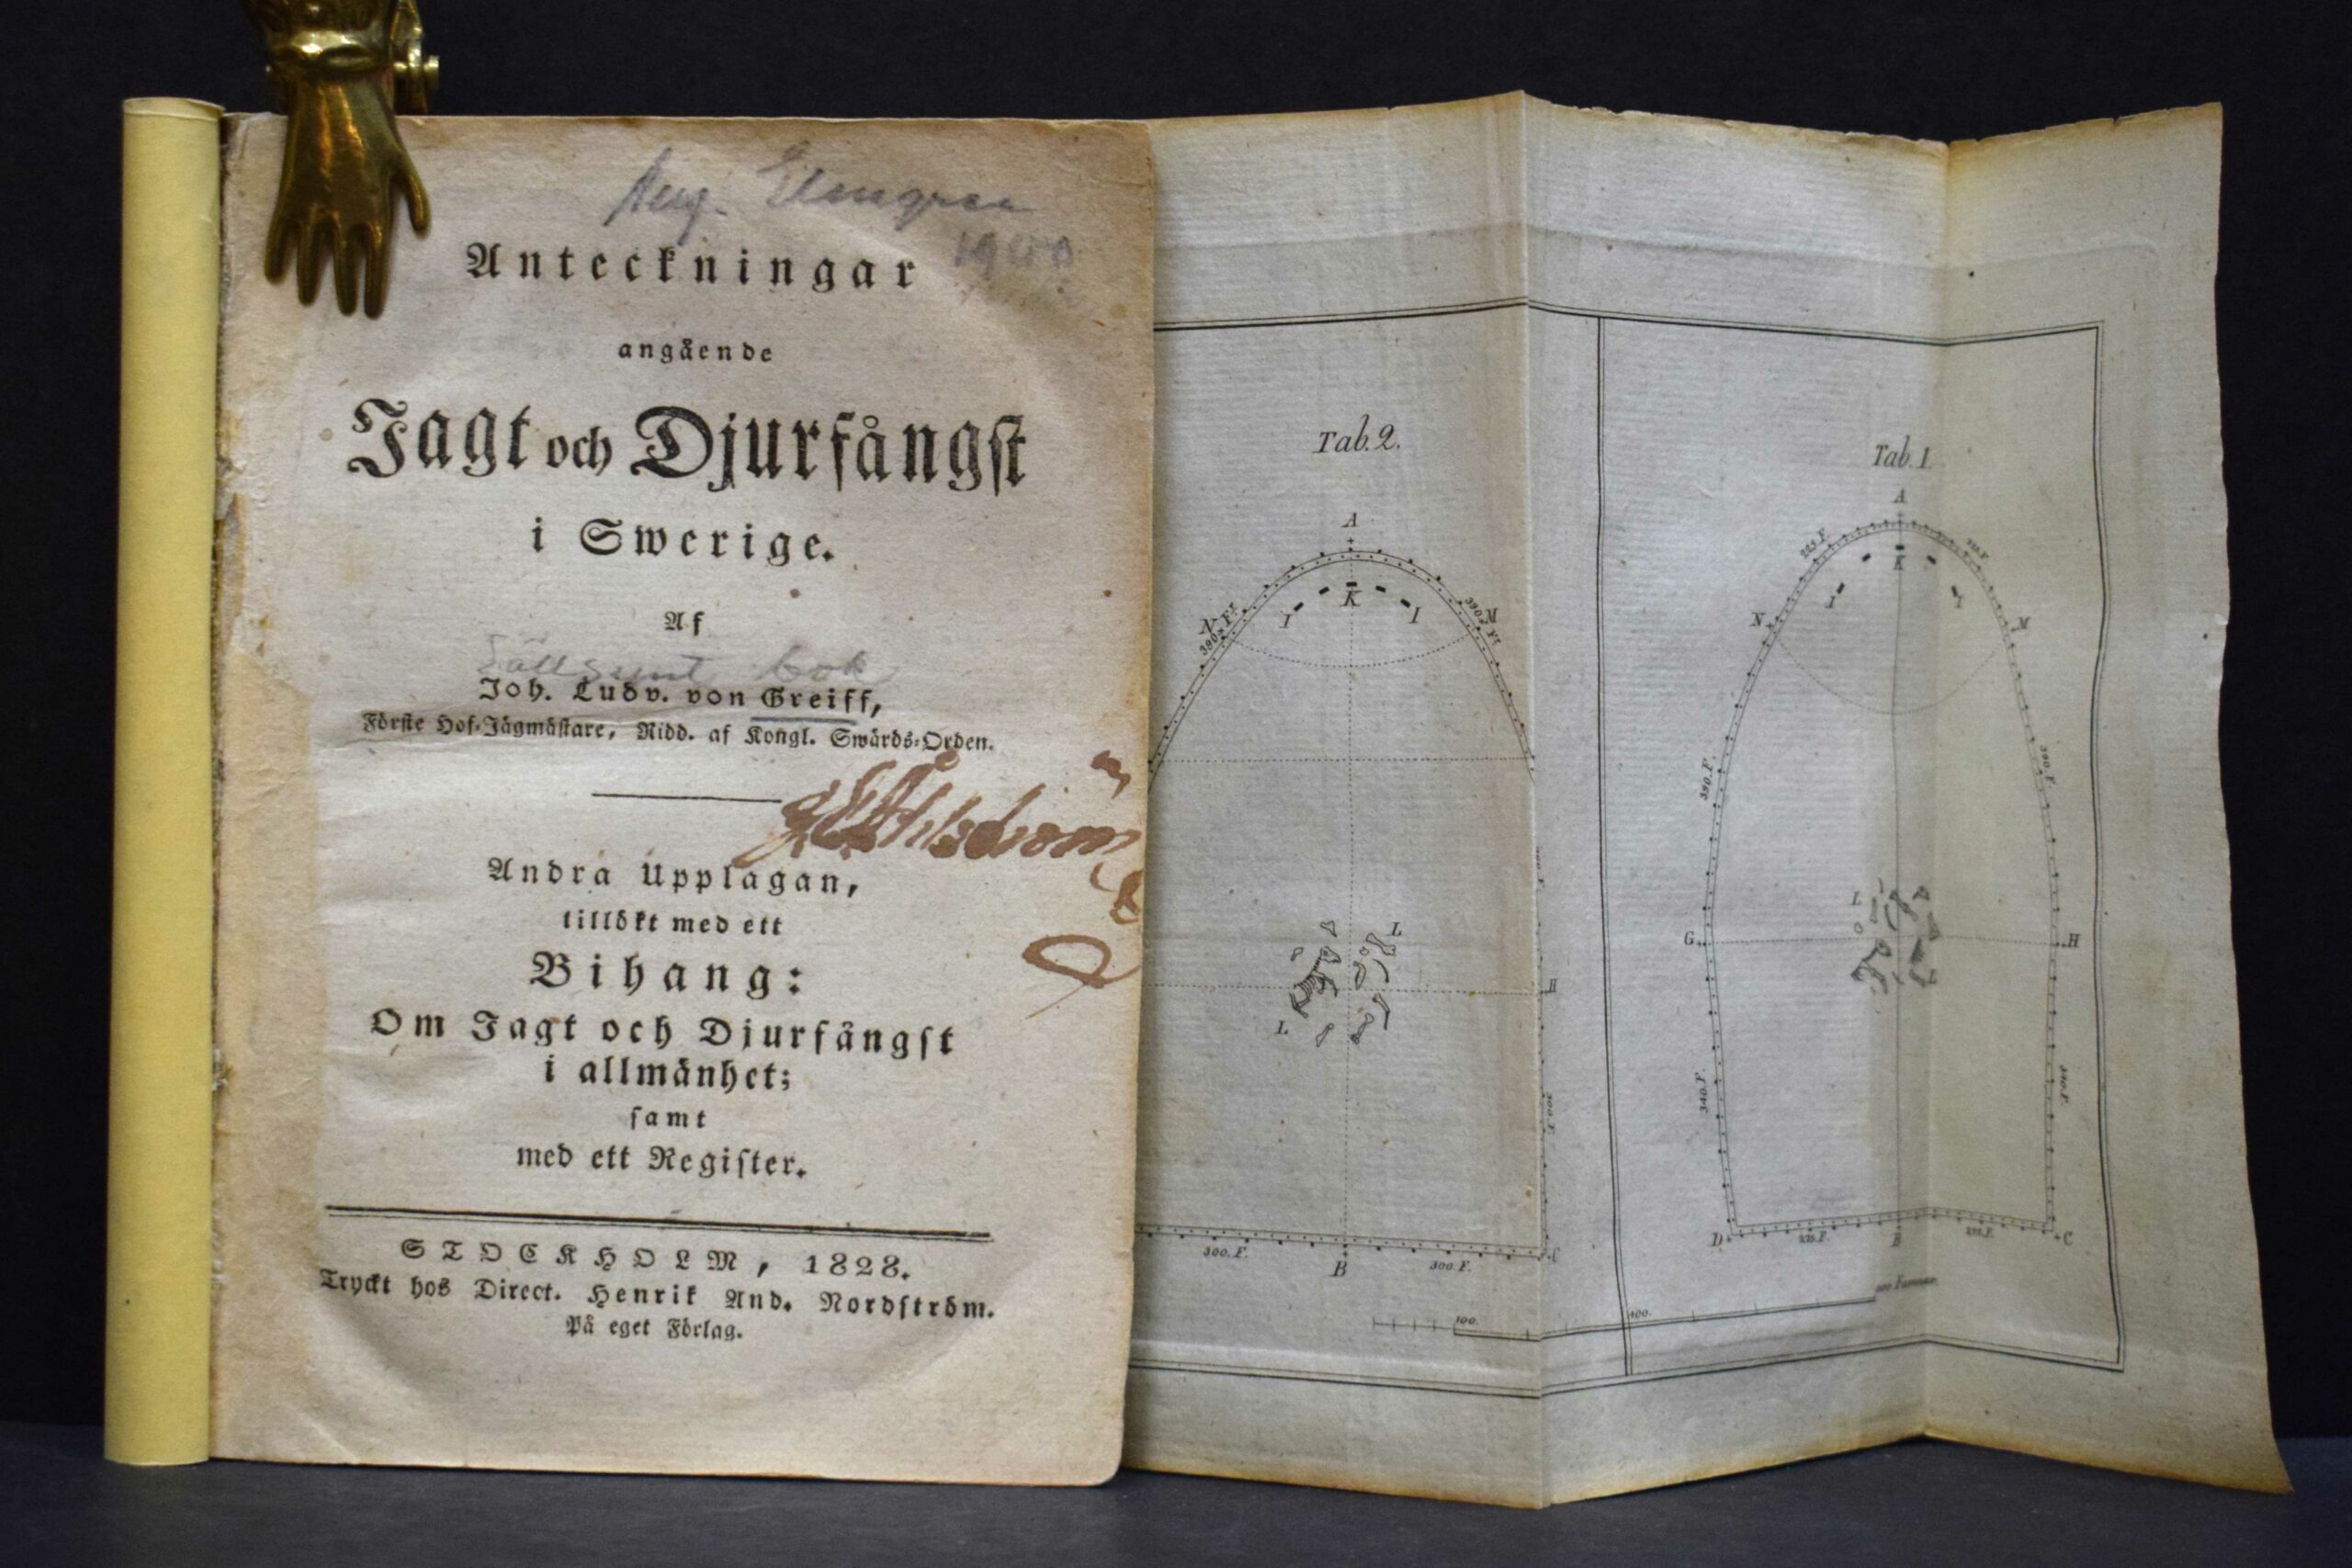 Aug. Elmgren
1900
Anteckningar
angående
Jagt och Djurfångst
i Swerige.
Af
Sällsynt bok
Joh. Ludv. von Greiff,
Förste Hof-Jägmästare, Ridd. af Kongl. Swärds-Orden.
Andra Upplagan,
tillökt med ett
Bihang:
Om Jagt och Djurfångst
i allmänhet;
samt
med ett Register.
STOCKHOLM, 1828.
Tryckt hos Direct. Henrik And. Nordström.
På eget Förlag.
Tab. 2.
A
N
M
I
K
I
L
L
H
300. F.
B
300. F.
C
100.
Tab. 1
A
225. F.
K
I
I
N
M
390. F.
390. F.
L
G.
H
340. F.
340. F.
D
225. F.
B
225. F.
C
400.